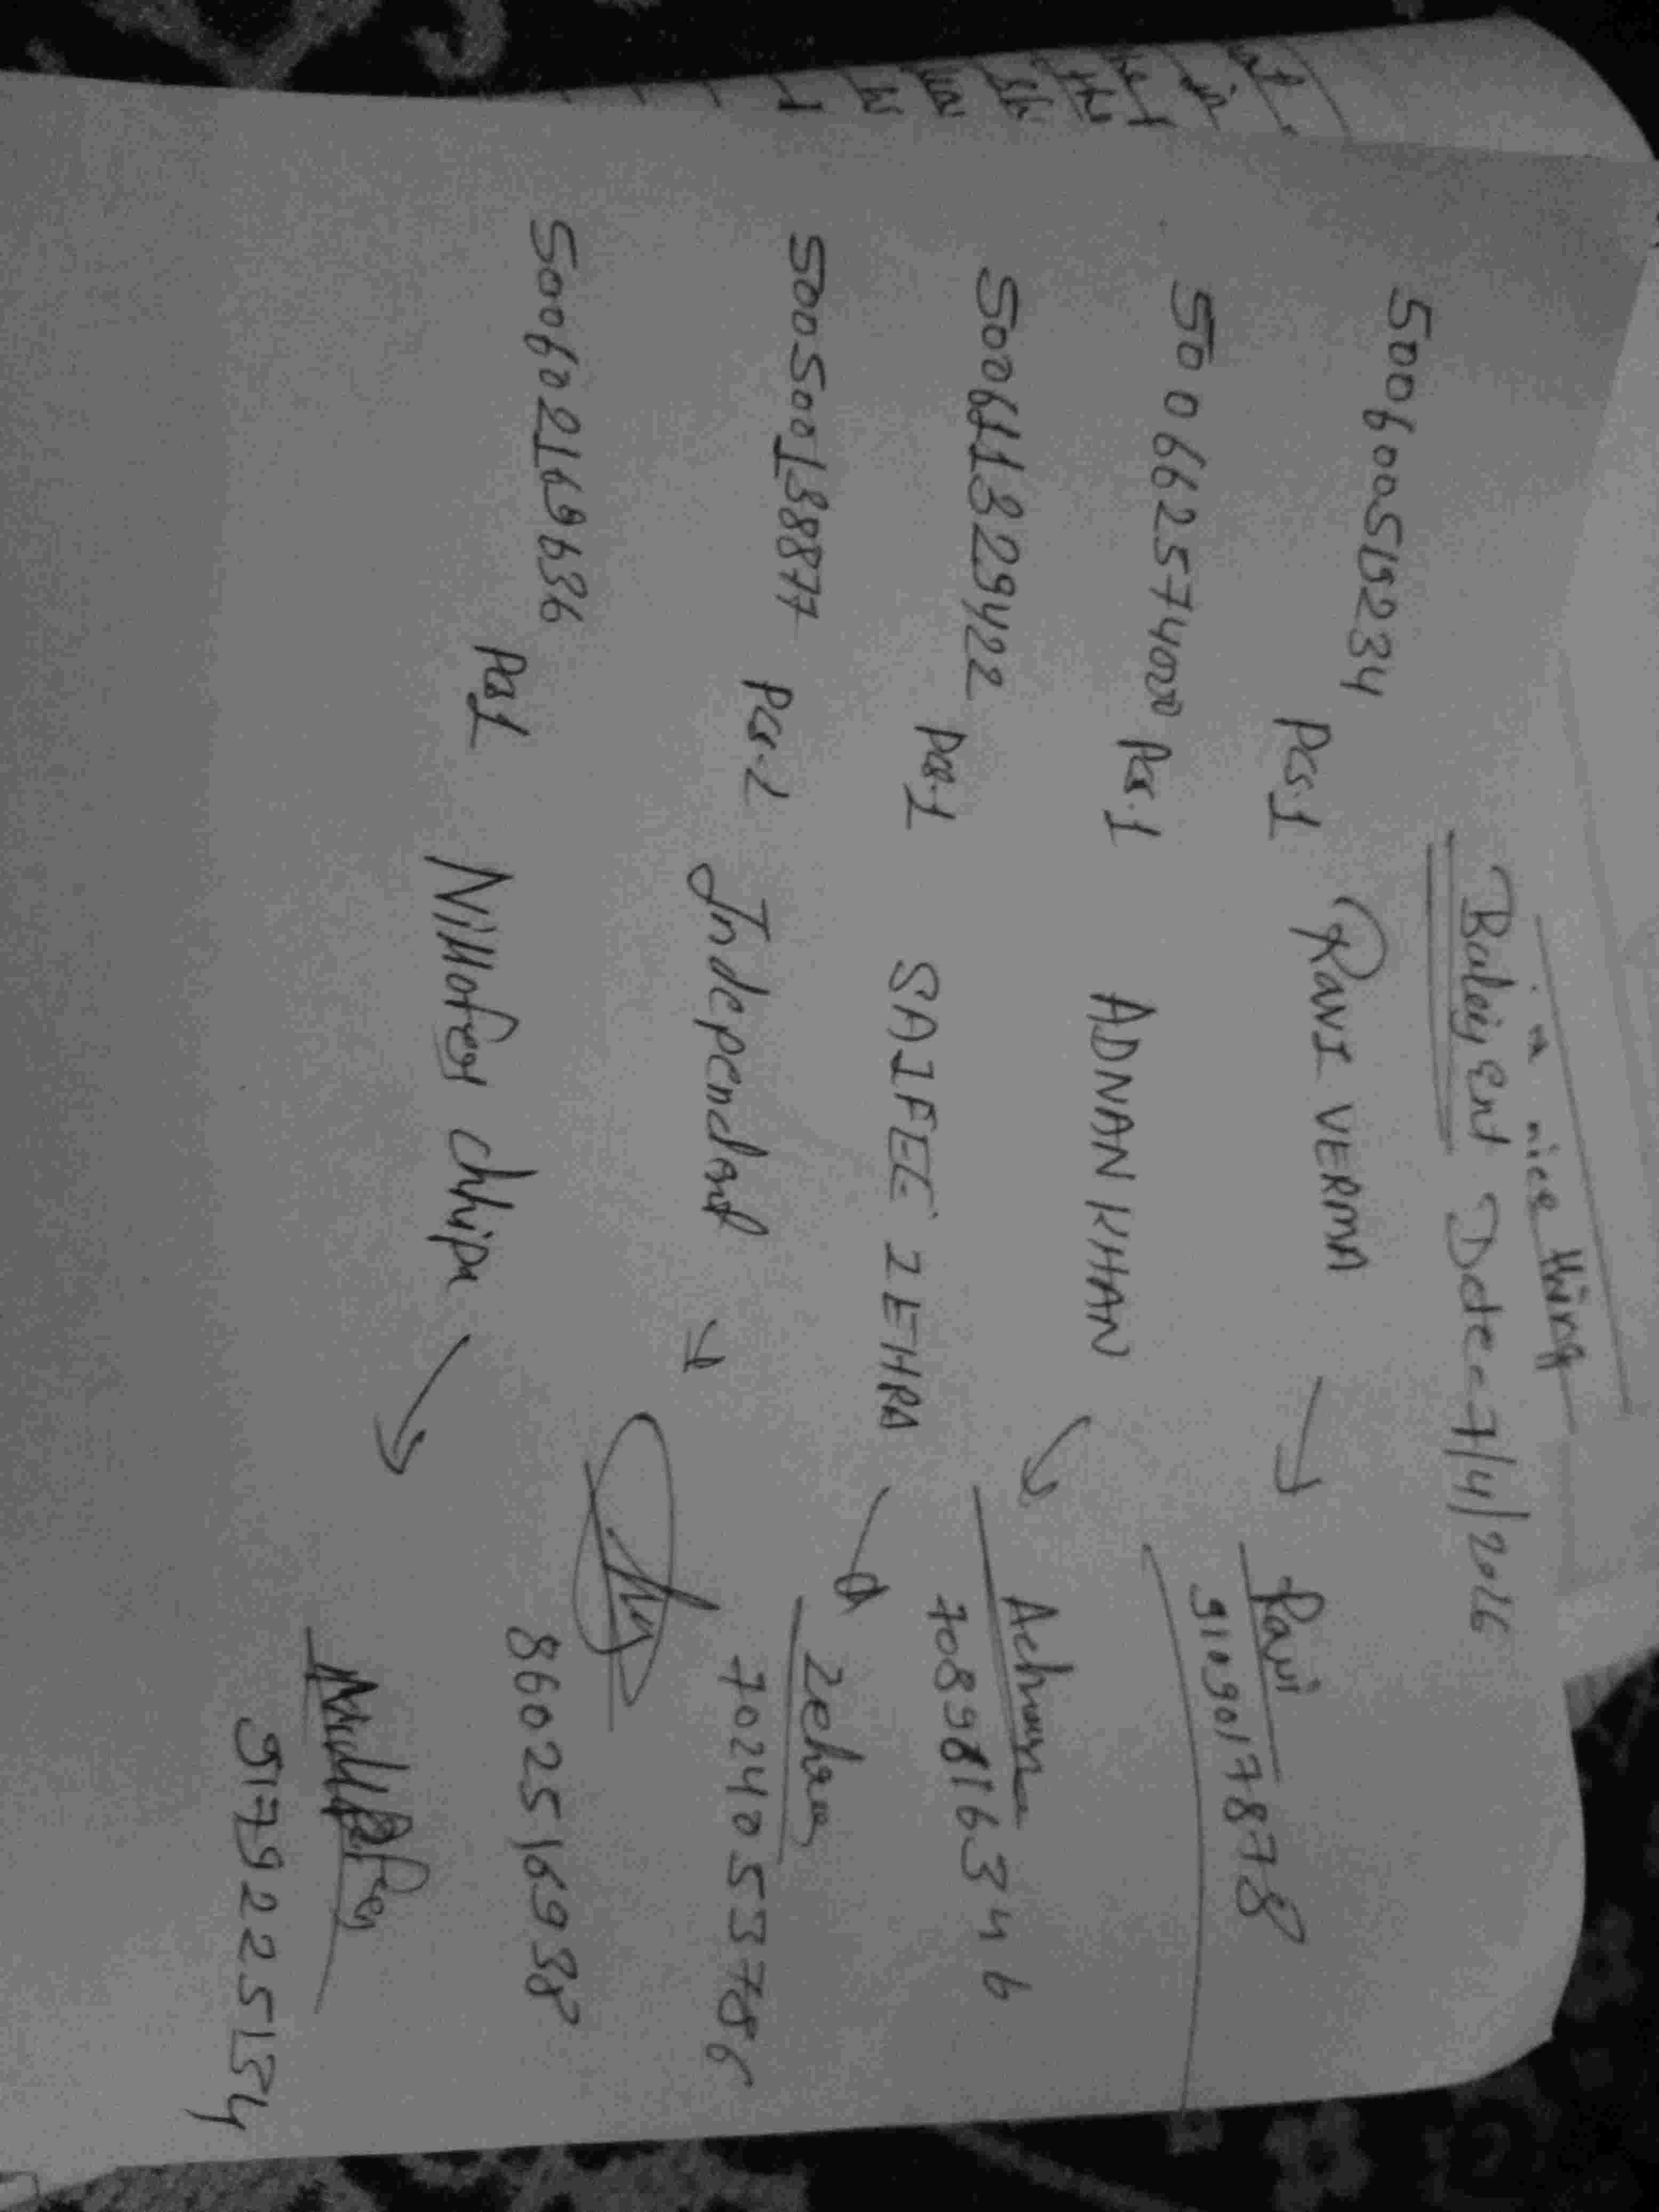 nice thing
Balaji Ent Date-7/4/2016
50060051S234 Pcs.1 RAVI VERMA → Ravi
9109017878
50066257400 Pcs.1 ADNAN KHAN →
7089816346
500611329422 Pcs.1 SAIFEE ZEHRA → Zehra
7024053786
50050018877 Pcs.2 Independant →
8602516938
500602169636 Pcs1 Nillofer chhipa →
9179225134